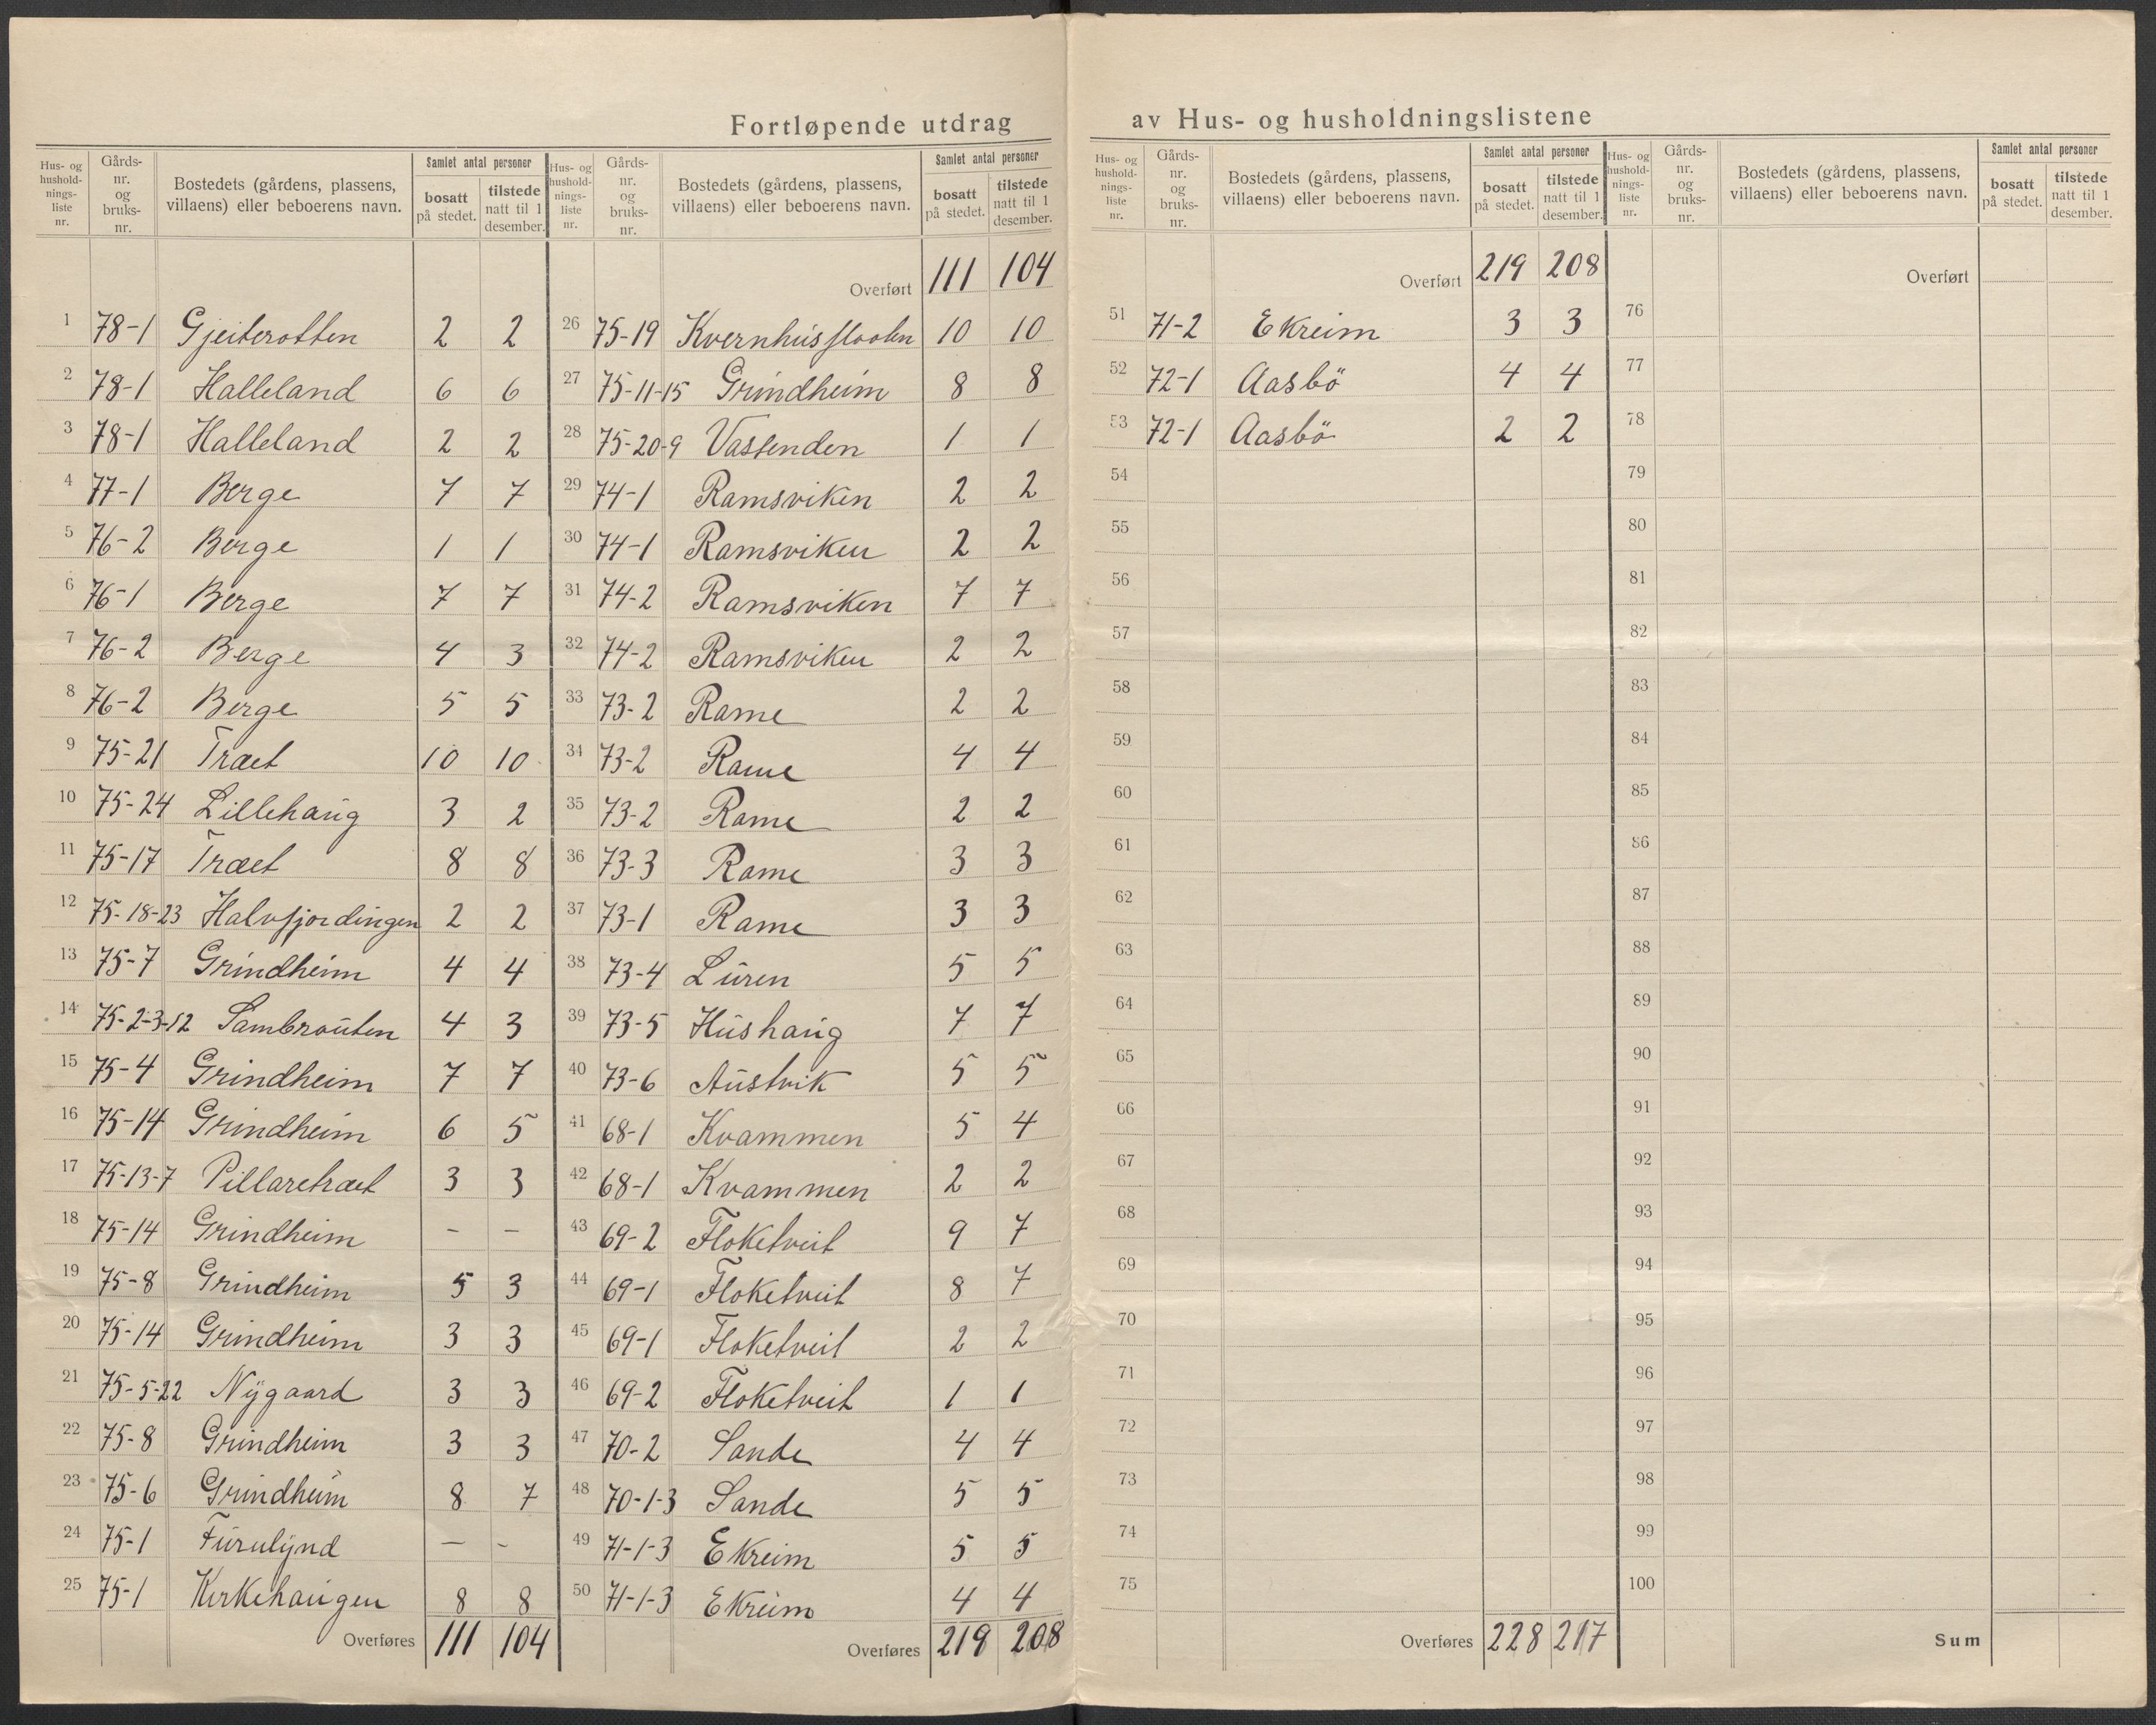 Fortløpende utdrag av Hus- og husholdningslistene
Hus- og hushold-nings-liste nr. | Gårds-nr. og bruks-nr. | Bostedets (gårdens, plassens, villaens) eller beboerens navn. | Samlet antal personer | bosatt på stedet. | tilstede natt til 1 desember.
1 78-1 Gjeiterotten 2 2
2 78-1 Halleland 6 6
3 78-1 Halleland 2 2
4 77-1 Berge 7 7
5 76-2 Berge 1 1
6 76-1 Berge 7 7
7 76-2 Berge 4 3
8 76-2 Berge 5 5
9 75-21 Træet 10 10
10 75-24 Lillehaug 3 2
11 75-17 Træet 8 8
12 75-18-23 Halvfjordingen 2 2
13 75-7 Grindheim 4 4
14 75-2-3-12 Sambrouten 4 3
15 75-4 Grindheim 7 7
16 75-14 Grindheim 6 5
17 75-13-7 Pillaretræet 3 3
18 75-14 Grindheim - -
19 75-8 Grindheim 5 3
20 75-14 Grindheim 3 3
21 75-5-22 Nygaard 3 3
22 75-8 Grindheim 3 3
23 75-6 Grindheim 8 7
24 75-1 Furulynd — -
25 75-1 Kirkehaugen 8 8
Overføres 111 104
Hus- og hushold-nings-liste nr. | Gårds-nr. og bruks-nr. | Bostedets (gårdens, plassens, villaens) eller beboerens navn. | Samlet antal personer | bosatt på stedet. | tilstede natt til 1 desember.
Overført 111 104
26 75-19 Kvernhusflooten 10 10
27 75-11-15 Grindheim 8 8
28 75-20-9 Vassenden 1 1
29 74-1 Ramsviken 2 2
30 74-1 Ramsviken 2 2
31 74-2 Ramsviken 7 7
32 74-2 Ramsviken 2 2
33 73-2 Rame 2 2
34 73-2 Rame 4 4
35 73-2 Rame 2 2
36 73-3 Rame 3 3
37 73-1 Rame 3 3
38 73-4 Luren 5 5
39 73-5 Hushaug 7 7
40 73-6 Austvik 5 5
41 68-1 Kvammen 5 4
42 68-1 Kvammen 2 2
43 69-2 Floketveit 9 7
44 69-1 Floketveit 8 7
45 69-1 Floketveit 2 2
46 69-2 Floketveit 1 1
47 70-2 Sande 4 4
48 70-1-3 Sande 5 5
49 71-1-3 Ekreim 5 5
50 71-1-3 Ekreim 4 4
Overføres 219 208
Hus- og hushold-nings-liste nr. | Gårds-nr. og bruks-nr. | Bostedets (gårdens, plassens, villaens) eller beboerens navn. | Samlet antal personer | bosatt på stedet. | tilstede natt til 1 desember.
Overført 219 208
51 71-2 Ekreim 3 3
52 72-1 Aasbö 4 4
53 72-1 Aasbö 2 2
54
55
56
57
58
59
60
61
62
63
64
65
66
67
68
69
70
71
72
73
74
75
Overføres 228 217
Hus- og hushold-nings-liste nr. | Gårds-nr. og bruks-nr. | Bostedets (gårdens, plassens, villaens) eller beboerens navn. | Samlet antal personer | bosatt på stedet. | tilstede natt til 1 desember.
Overført
76
77
78
79
80
81
82
83
84
85
86
87
88
89
90
91
92
93
94
95
96
97
98
99
100
Sum